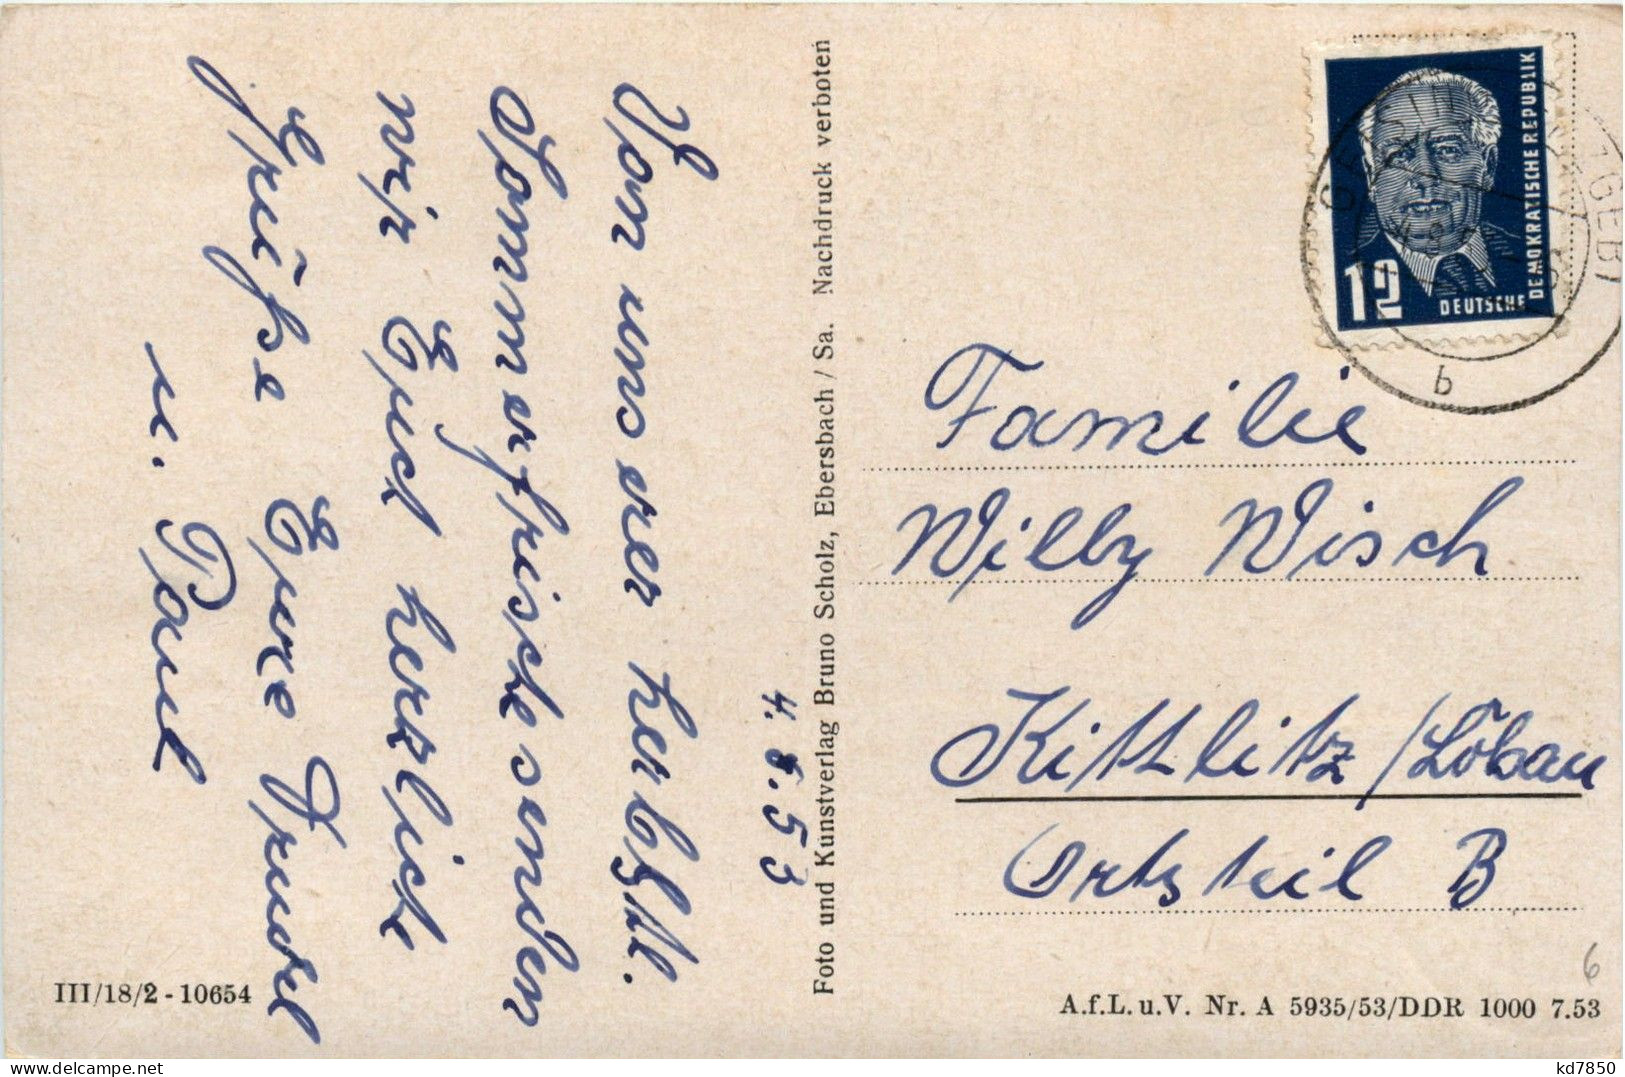 4. 8. 53
Von unserer herbstl.
Sommerfrische senden
wir Euch herzliche
Grüße Eure Trudel
u. Paul
Foto und Kunstverlag Bruno Scholz, Ebersbach / Sa. Nachdruck verboten
12
DEUTSCHE
DEMOKRATISCHE REPUBLIK
b
Familie
Willy Wisch
Kittlitz /Löbau
Ortsteil B
6
III/18/2 - 10654
A.f.L.u.V. Nr. A 5935/53/DDR 1000 7.53
kd7850